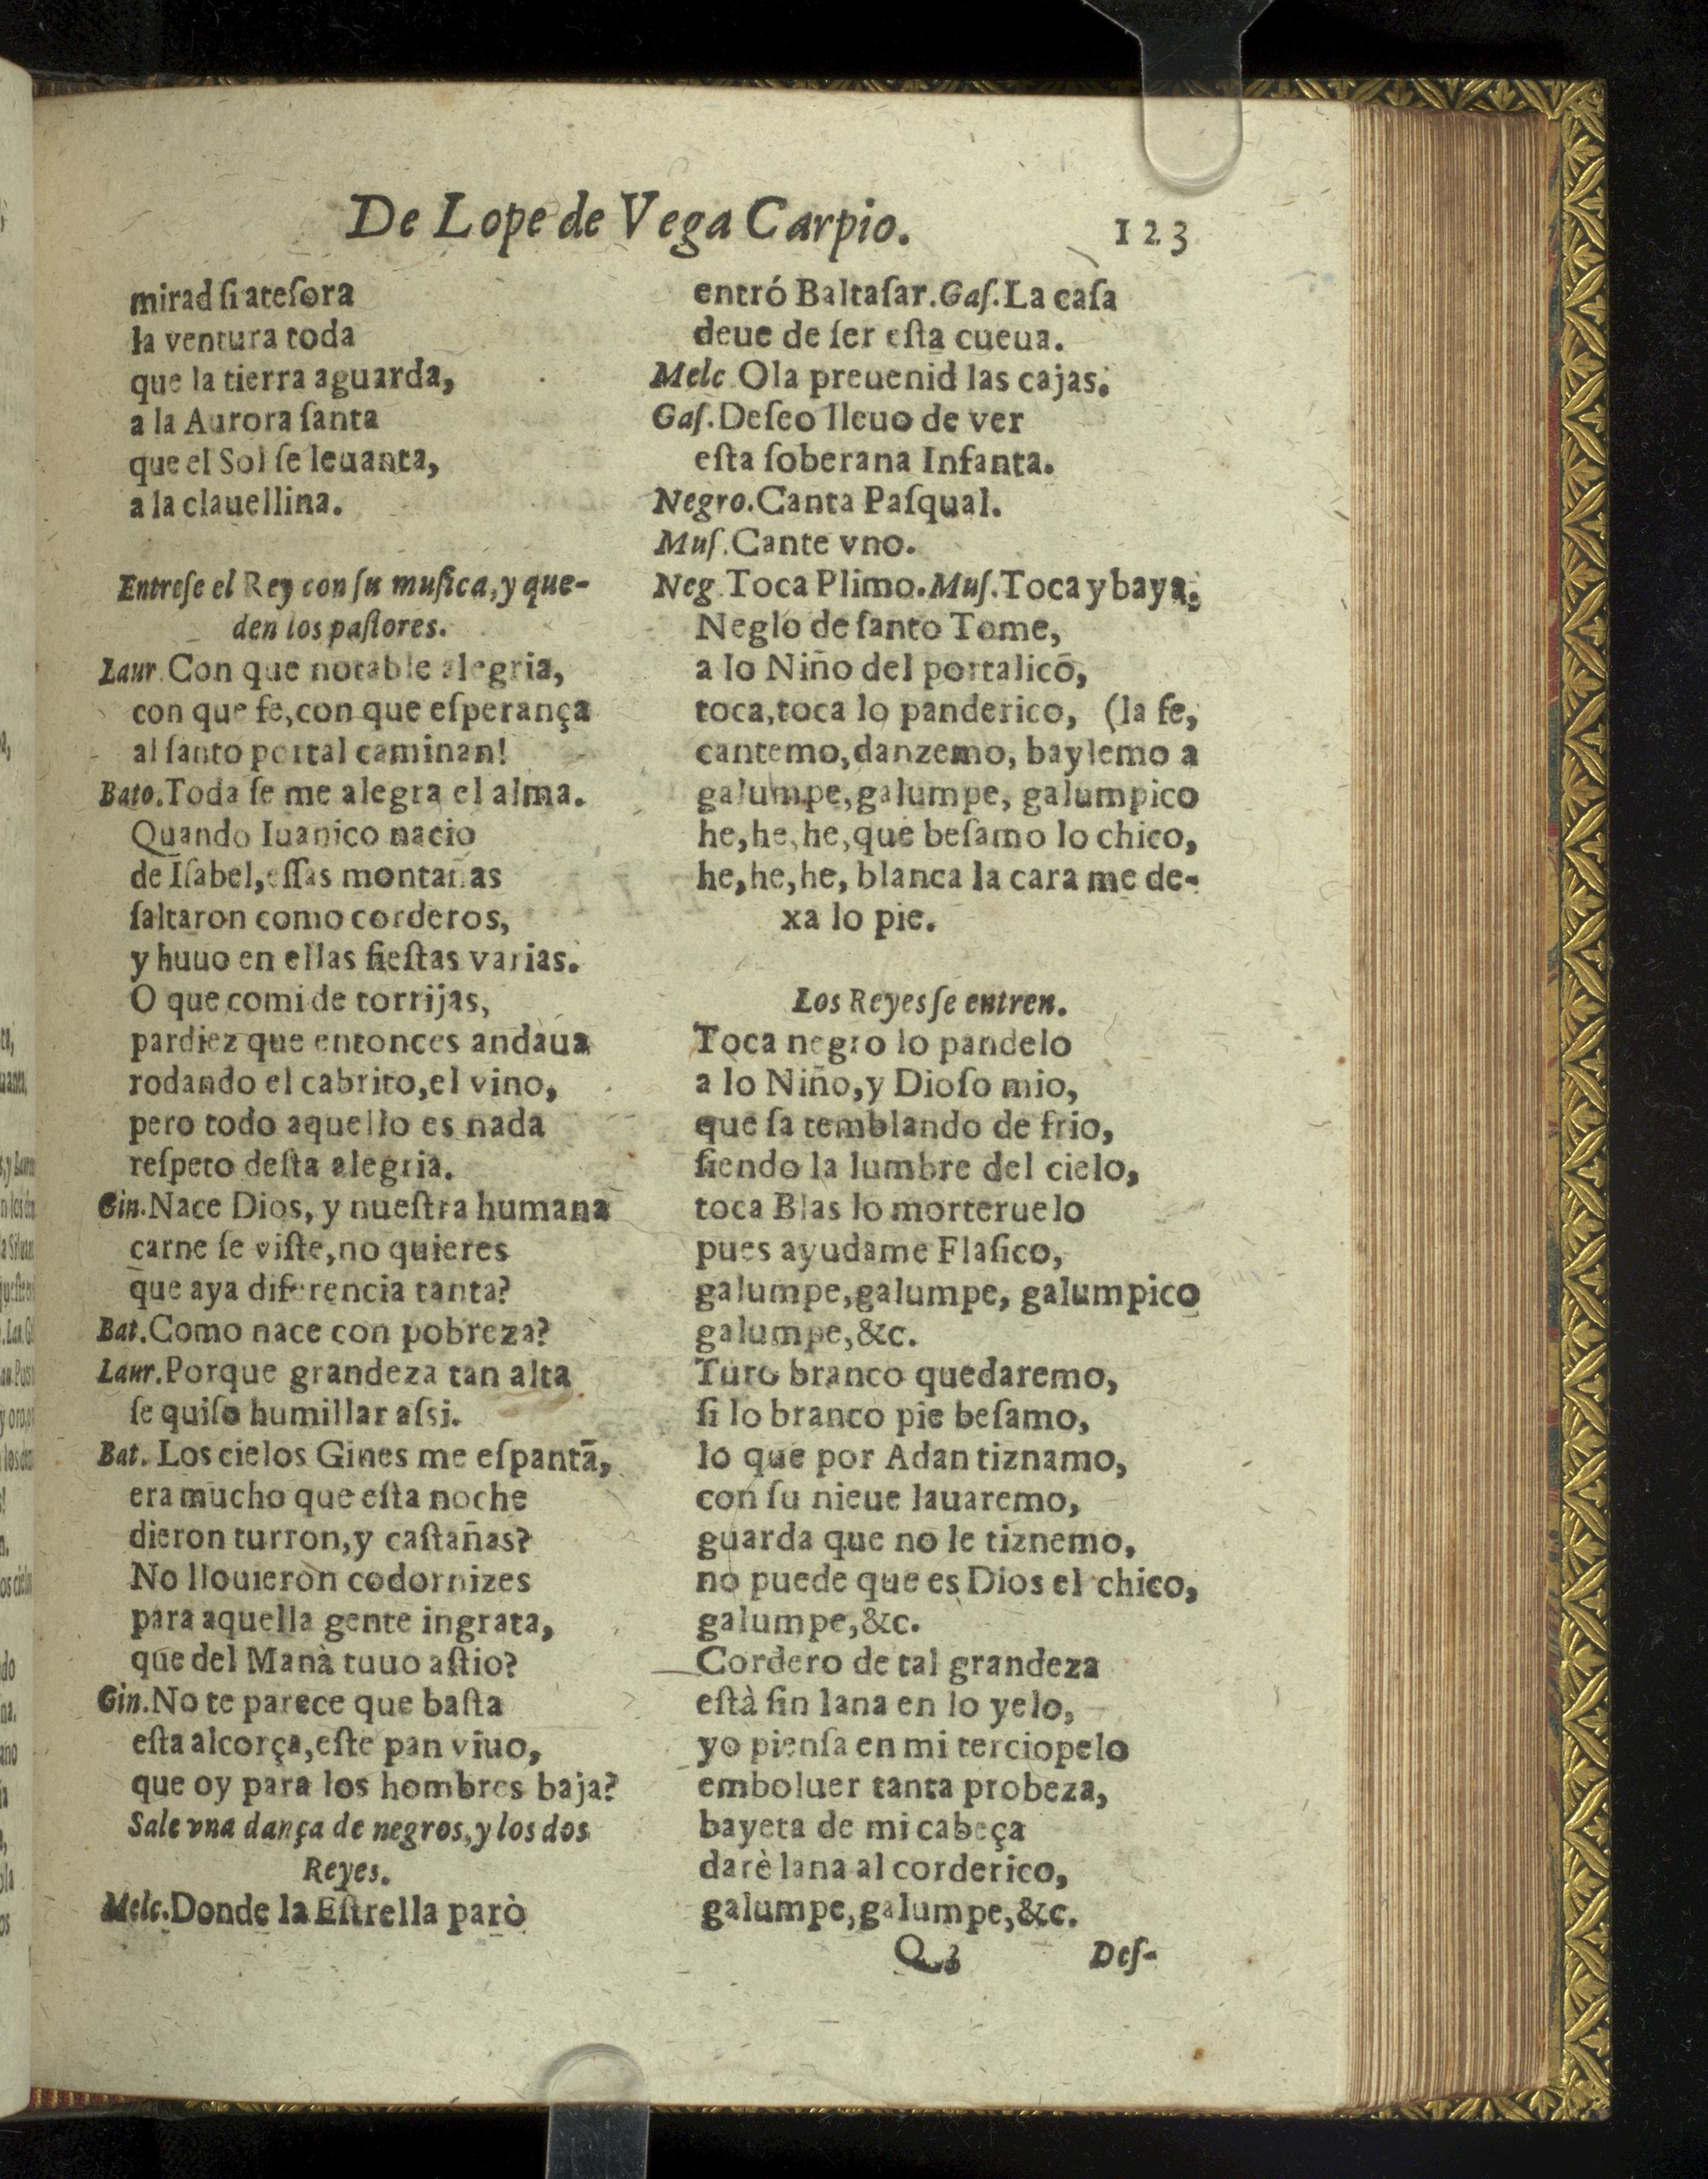 De Lope de Vega Carpio. 123
mirad ſi ateſora
la ventura toda
que la tierra aguarda,
a la Aurora ſanta
que el Sol ſe leuanta,
a la clauellina.
Entreſe el Rey con ſu muſica, y que-
den los paſtores.
Laur. Con que notable alegria,
con que fe, con que eſperança
al ſanto portal caminan!
Bato. Toda ſe me alegra el alma.
Quando Iuanico nacio
de Iſabel, eſſas montañas
ſaltaron como corderos,
y huuo en ellas fieſtas varias.
O que comi de torrijas,
pardiez que entonces andaua
rodando el cabrito, el vino,
pero todo aquello es nada
reſpeto deſta alegria.
Gin. Nace Dios, y nueſtra humana
carne ſe viſte, no quieres
que aya diferencia tanta?
Bat. Como nace con pobreza?
Laur. Porque grandeza tan alta
ſe quiſo humillar aſsi.
Bat. Los cielos Gines me eſpantã,
era mucho que eſta noche
dieron turron, y caſtañas?
No llouieron codornizes
para aquella gente ingrata,
que del Manà tuuo aſtio?
Gin. No te parece que baſta
eſta alcorça, eſte pan viuo,
que oy para los hombres baja?
Sale vna dança de negros, y los dos
Reyes.
Melc. Donde la Eſtrella parò
entró Baltaſar. Gaſ. La caſa
deue de ſer eſta cueua.
Melc Ola preuenid las cajas.
Gaſ. Deſeo lleuo de ver
eſta ſoberana Infanta.
Negro. Canta Paſqual.
Muſ. Cante vno.
Neg. Toca Plimo. Muſ. Toca y baya.
Neglo de ſanto Tome,
a lo Niño del portalicõ,
toca, toca lo panderico, (la fe,
cantemo, danzemo, baylemo a
galumpe, galumpe, galumpico
he, he, he, que beſamo lo chico,
he, he, he, blanca la cara me de-
xa lo pie.
Los Reyes ſe entren.
Toca negro lo pandelo
a lo Niño, y Dioſo mio,
que ſa temblando de frio,
ſiendo la lumbre del cielo,
toca Blas lo morteruelo
pues ayudame Flaſico,
galumpe, galumpe, galumpico
galumpe, &c.
Turo branco quedaremo,
ſi lo branco pie beſamo,
lo que por Adan tiznamo,
con ſu nieue lauaremo,
guarda que no le tiznemo,
no puede que es Dios el chico,
galumpe, &c.
Cordero de tal grandeza
eſtà ſin lana en lo yelo,
yo pienſa en mi terciopelo
emboluer tanta probeza,
bayeta de mi cabeça
darè lana al corderico,
galumpe, galumpe, &c.
Q3 Deſ-